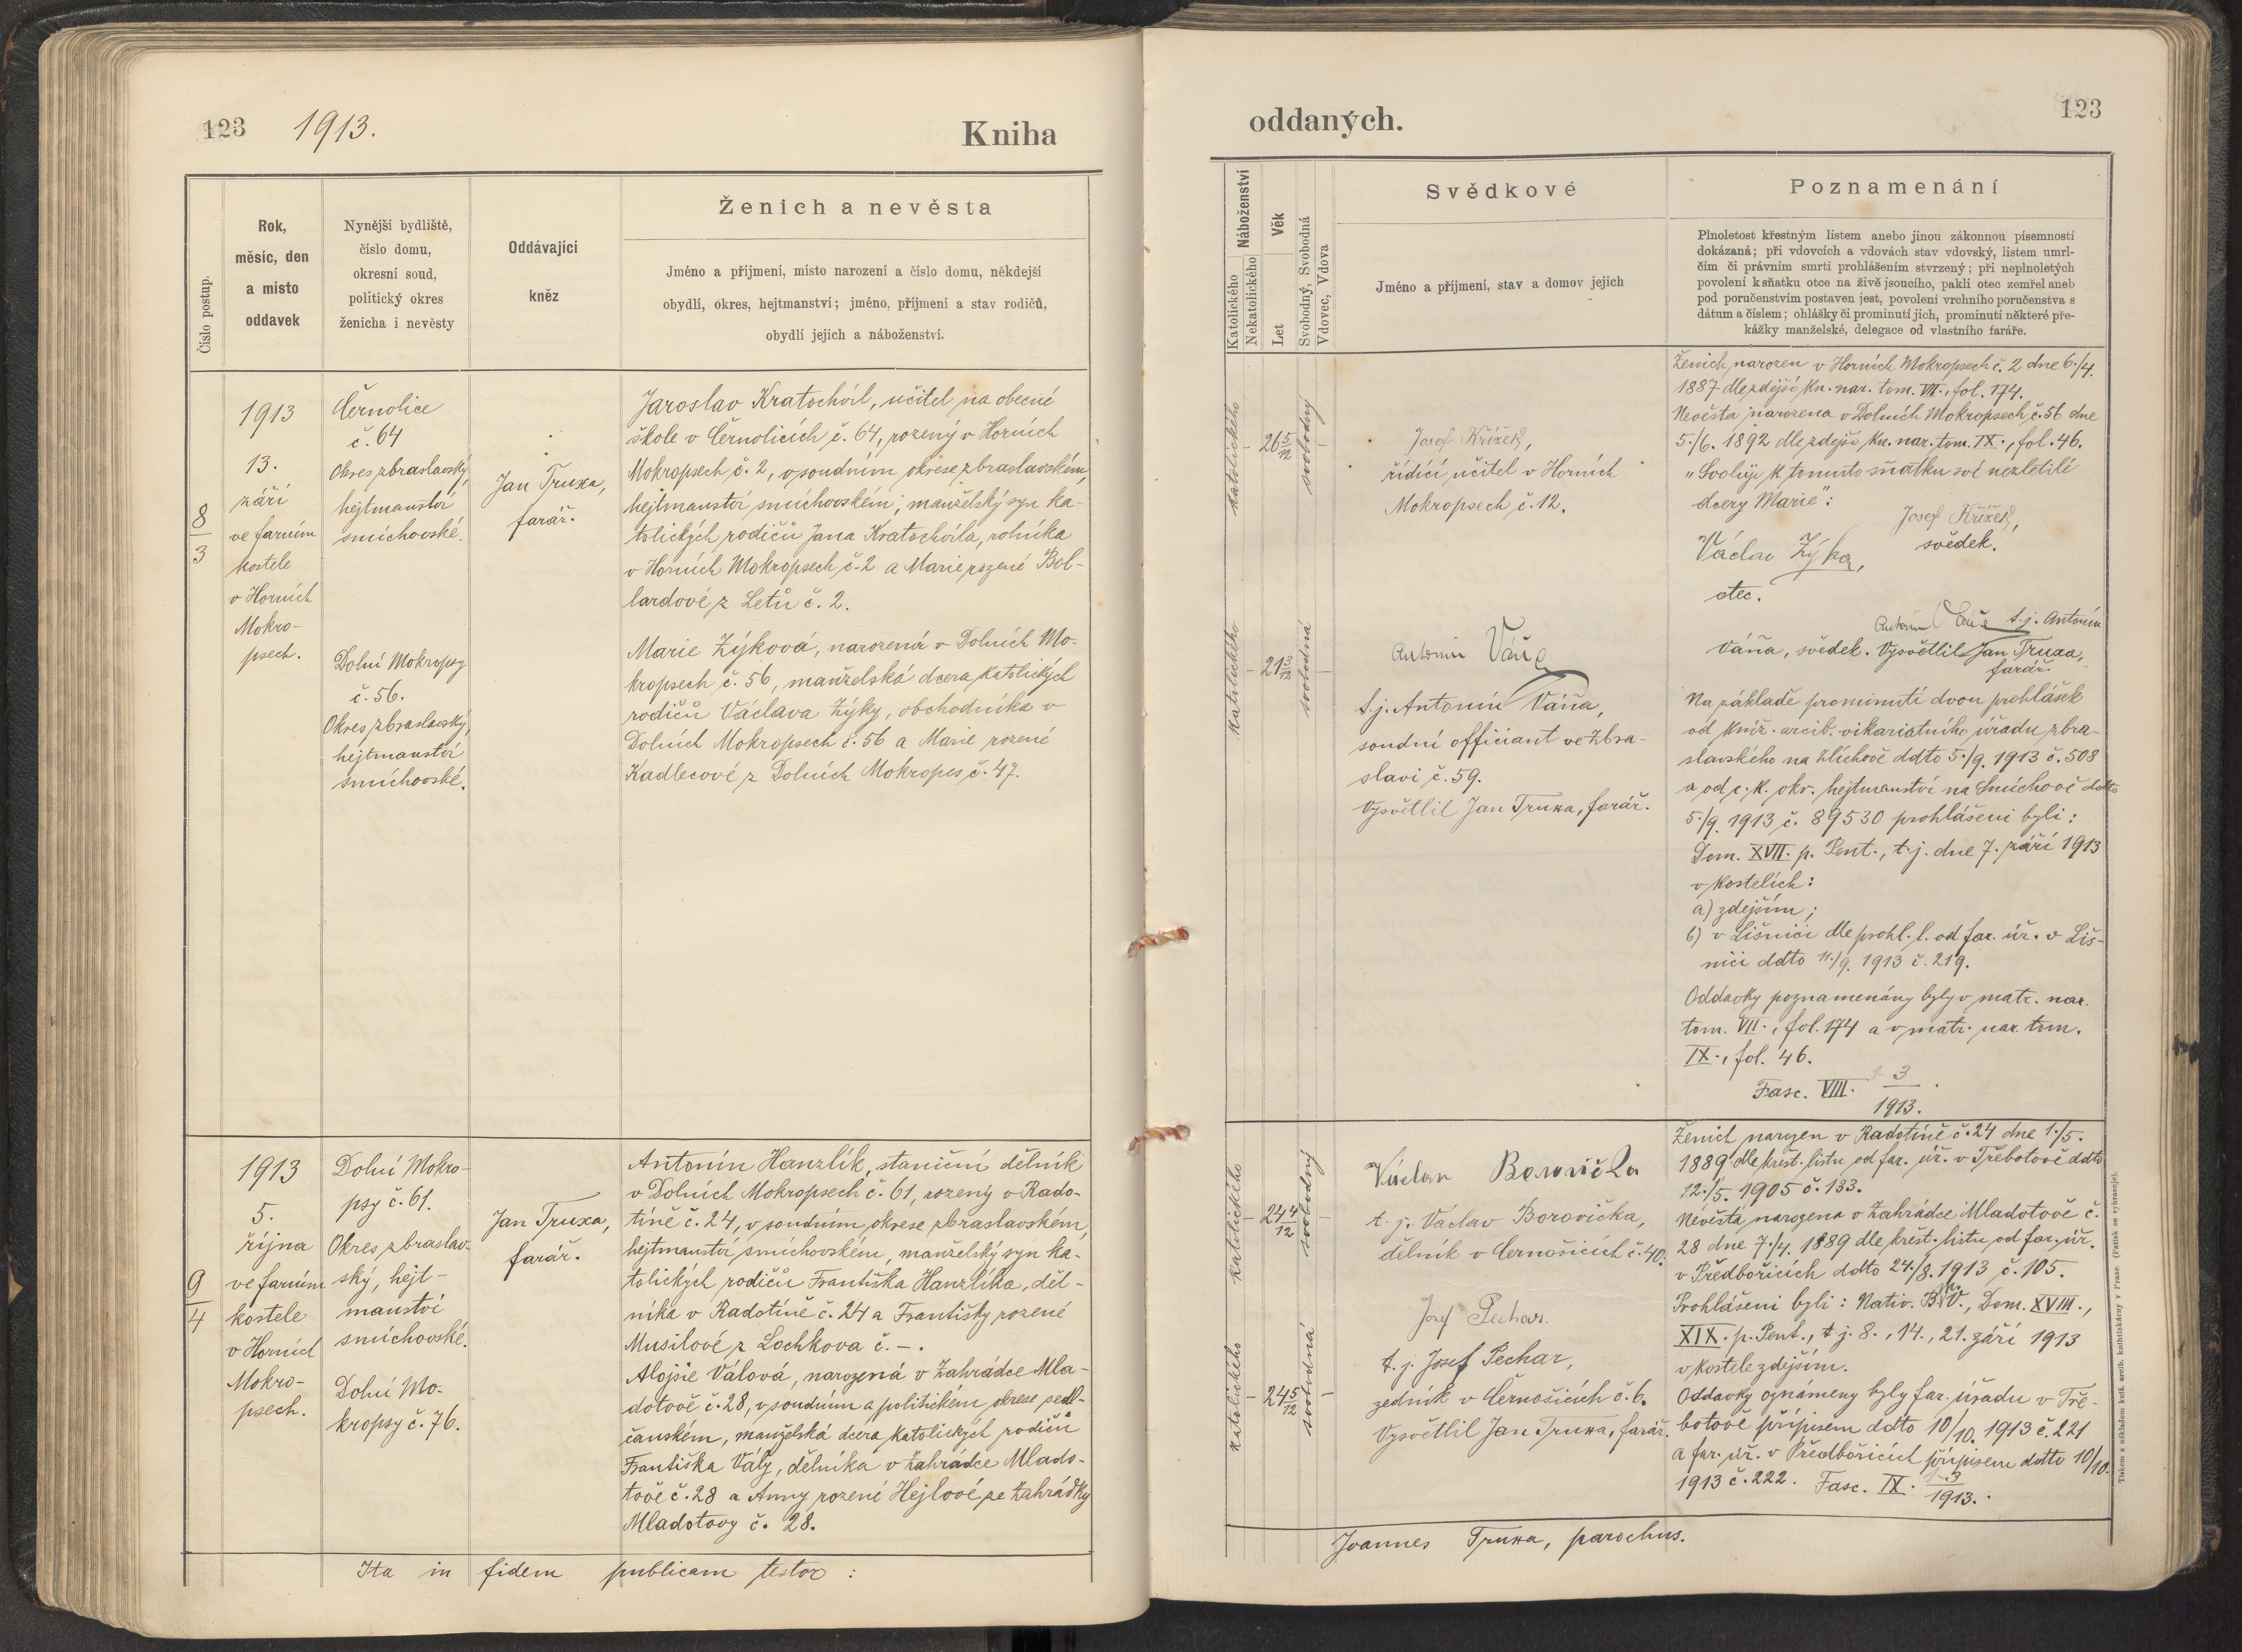 123 1913. Kniha
Číslo postup.
Rok,
měsíc, den
a místo
oddavek
Nynější bydliště,
číslo domu,
okresní soud,
politický okres
ženicha i nevěsty
Oddávající
kněz
Ženich a nevěsta
Jméno a příjmení, místo narození a číslo domu, někdejší
obydlí, okres, hejtmanství; jméno, příjmení a stav rodičů,
obydlí jejich a náboženství.
8
3
1913
13.
září
ve farním
kostele
v Horních
Mokro-
psech.
Černolice
č. 64
Okres zbraslavský,
hejtmanství
smíchovské.
Dolní Mokropsy
č. 56.
Okres zbraslavský,
hejtmanství
smíchovské.
Jan Truxa,
farář.
Jaroslav Kratochvíl, učitel na obecné
škole v Černolicích č. 64, rozený v Horních
Mokropsech č. 2, v soudním okrese zbraslavském,
hejtmanství smíchovském, manželský syn ka-
tolických rodičů Jana Kratochvíla, rolníka
v Horních Mokropsech č. 2 a Marie rozené Bol-
lardové z Letů č. 2.
Marie Zýková, narozená v Dolních Mo-
kropsech č. 56, manželská dcera katolických
rodičů Václava Zýky, obchodníka v
Dolních Mokropsech č. 56 a Marie rozené
Kadlecové z Dolních Mokropes č. 47.
9
4
1913
5.
října
ve farním
kostele
v Horních
Mokro-
psech.
Dolní Mokro-
psy č. 61.
Okres zbraslav-
ský, hejt-
manství
smíchovské.
Dolní Mo-
kropsy č. 76.
Jan Truxa,
farář.
Antonín Hanzlík, staniční dělník
v Dolních Mokropsech č. 61, rozený v Rado-
tíně č. 24, v soudním okrese zbraslavském,
hejtmanství smíchovském, manželský syn ka-
tolických rodičů Františka Hanzlíka, děl-
níka v Radotíně č. 24 a Františky rozené
Musilové z Lochkova č. – .
Alojsie Válová, narozená v Zahrádce Mla-
dotově č. 28, v soudním a politickém okrese sedl-
čanském, manželská dcera katolických rodičů
Františka Vály, dělníka v Zahrádce Mlado-
tově č. 28 a Anny rozené Hejlové ze Zahrádky
Mladotovy č. 28.
Ita in fidem publicam testor :
oddaných. 123
Náboženství
Katolického
Nekatolického
Věk
Let
Svobodný, Svobodná
Vdovec, Vdova
Svědkové
Jméno a příjmení, stav a domov jejich
Poznamenání
Plnoletost křestným listem anebo jinou zákonnou písemností
dokázaná; při vdovcích a vdovách stav vdovský, listem umrl-
čím či právním smrti prohlášením stvrzený; při neplnoletých
povolení k sňatku otce na živě jsoucího, pakli otec zemřel aneb
pod poručenstvím postaven jest, povolení vrchního poručenstva s
dátum a číslem; ohlášky či prominutí jich, prominutí některé pře-
kážky manželské, delegace od vlastního faráře.
katolického
– 26 5/12
svobodný –
katolického
– 21 3/12
svobodná –
Josef Křížek,
řídící učitel v Horních
Mokropsech č. 12.
Antonín Váňa
t.j. Antonín Váňa,
soudní officiant ve Zbra-
slavi č. 59.
Vysvětlil Jan Truxa, farář.
Ženich narozen v Horních Mokropsech č. 2 dne 6./4.
1887 dle zdejší kn. nar. tom. VII., fol. 174.
Nevěsta narozena v Dolních Mokropsech č. 56 dne
5./6. 1892 dle zdejší kn. nar. tom. IX., fol. 46.
„Svoluji k tomuto sňatku své nezletilé
dcery Marie“:
Josef Křížek,
svědek.
Václav Zýka,
otec.
Antonín Váňa t.j. Antonín
Váňa, svědek. Vysvětlil Jan Truxa,
farář.
Na základě prominutí dvou prohlášek
od kníž. arcib. vikariatního úřadu zbra-
slavského na Zlíchově ddto 5./9. 1913 č. 508
a od c. k. okr. hejtmanství na Smíchově ddto
5./9. 1913 č. 89530 prohlášeni byli:
Dom. XVII. p. Pent., t.j. dne 7. září 1913
v kostelích:
a) zdejším;
b) v Líšnici dle prohl. l. od far. úř. v Líš-
nici ddto 11./9. 1913 č. 219.
Oddavky poznamenány byly v matr. nar.
tom. VII., fol. 174 a v matr. nar. tom.
IX., fol. 46.
Fasc. VIII. 3
1913.
katolického
– 24 4/12
svobodný –
katolického
– 24 5/12
svobodná –
Václav Borovička
t. j. Václav Borovička,
dělník v Černošicích č. 40.
Josef Pechar.
t. j. Josef Pechar,
zedník v Černošicích č. 6.
Vysvětlil Jan Truxa, farář.
Ženich narozen v Radotíně č. 24 dne 1./5.
1889 dle křest. listu od far. úř. v Třebotově ddto
12./5. 1905 č. 133.
Nevěsta narozena v Zahrádce Mladotově č.
28 dne 7./4. 1889 dle křest. listu od far. úř.
v Předbořicích ddto 24./8. 1913 č. 105.
Prohlášeni byli: Nativ. B. M. V., Dom. XVIII.,
XIX. p. Pent., t. j. 8., 14., 21. září 1913
v kostele zdejším.
Oddavky oznámeny byly far. úřadu v Tře-
botově přípisem ddto 10/10. 1913 č. 221
a far. úř. v Předbořicích přípisem ddto 10/10.
1913 č. 222. Fasc. IX. 3
1913.
Joannes Truxa, parochus.